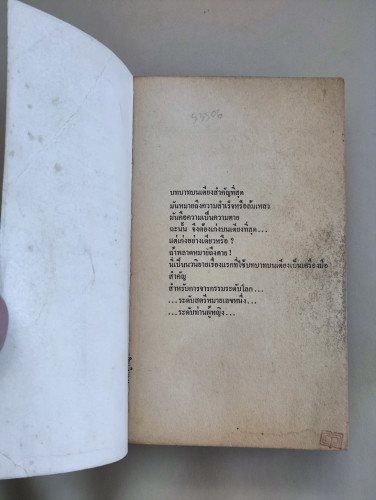 53506
บทบาทบนเตียงสำคัญที่สุด
มันหมายถึงความสำเร็จหรือล้มเหลว
มันคือความเป็นความตาย
ฉะนั้น จึงต้องเก่งบนเตียงที่สุด...
แต่เก่งอย่างเดียวหรือ ?
ถ้าพลาดหมายถึงตาย !
นี่เป็นนวนิยายเรื่องแรกที่ใช้บทบาทบนเตียงเป็นเครื่องมือ
สำคัญ
สำหรับการจารกรรมระดับโลก...
...ระดับสตรีหมายเลขหนึ่ง...
...ระดับท่านผู้หญิง...